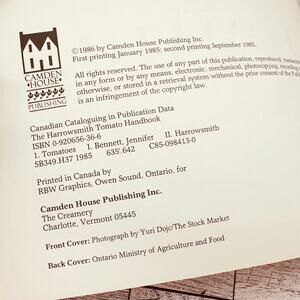 CAMDEN
HOUSE
PUBLISHING
©1986 by Camden House Publishing Inc.
First printing January 1985; second printing September 1985.
All rights reserved. The use of any part of this publication, reproduced,
in any form or by any means, electronic, mechanical, photocopying,
otherwise, or stored in a retrieval system without the prior consent of the
is an infringement of the copyright law.
Canadian Cataloguing in Publication Data
The Harrowsmith Tomato Handbook
ISBN 0-920656-36-6
1. Tomatoes I. Bennett, Jennifer II. Harrowsmith
SB349.H37 1985 635'.642 C85-098413-0
Printed in Canada by
RBW Graphics, Owen Sound, Ontario, for
Camden House Publishing Inc.
The Creamery
Charlotte, Vermont 05445
Front Cover: Photograph by Yuri Dojc/The Stock Market
Back Cover: Ontario Ministry of Agriculture and Food